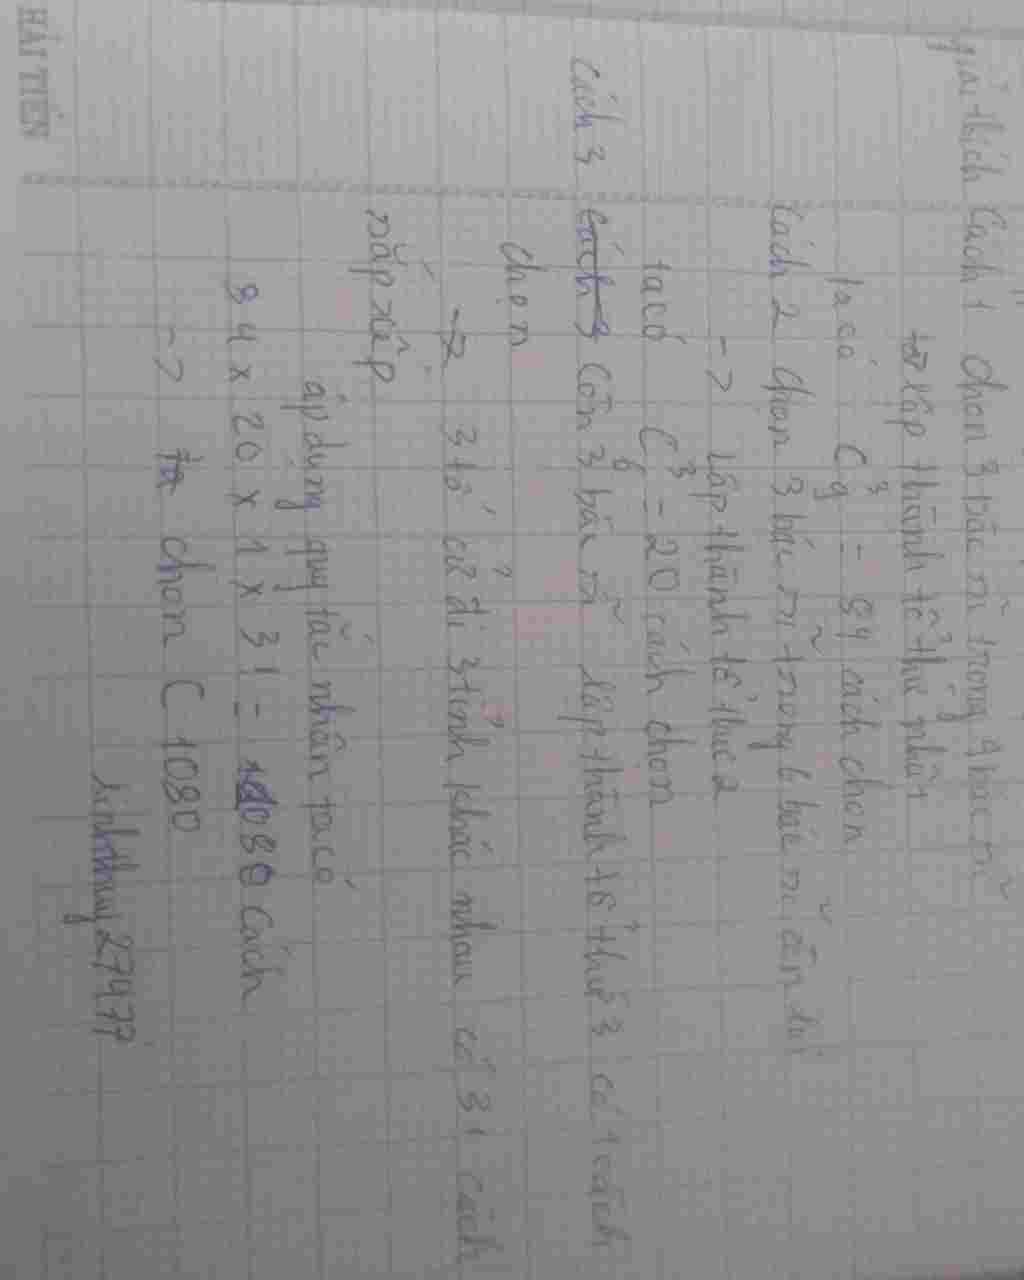 HẢI TIẾN
giải thích Cách 1 chọn 3 bác sĩ trong 9 bác sĩ
lập thành tổ thứ nhất
ta có C³9 = 84 cách chọn
Cách 2 chọn 3 bác sĩ trong 6 bác sĩ còn lại
-> lập thành tổ thứ 2
ta có C³6 = 20 cách chọn
Cách 3 còn 3 bác sĩ lập thành tổ thứ 3 có 1 cách
chọn
-> 3 tổ cử đi 3 tỉnh khác nhau có 3! cách
sắp xếp
áp dụng quy tắc nhân ta có
84 x 20 x 1 x 3! = 1080 cách
-> chọn C 1080
linhthuy27477